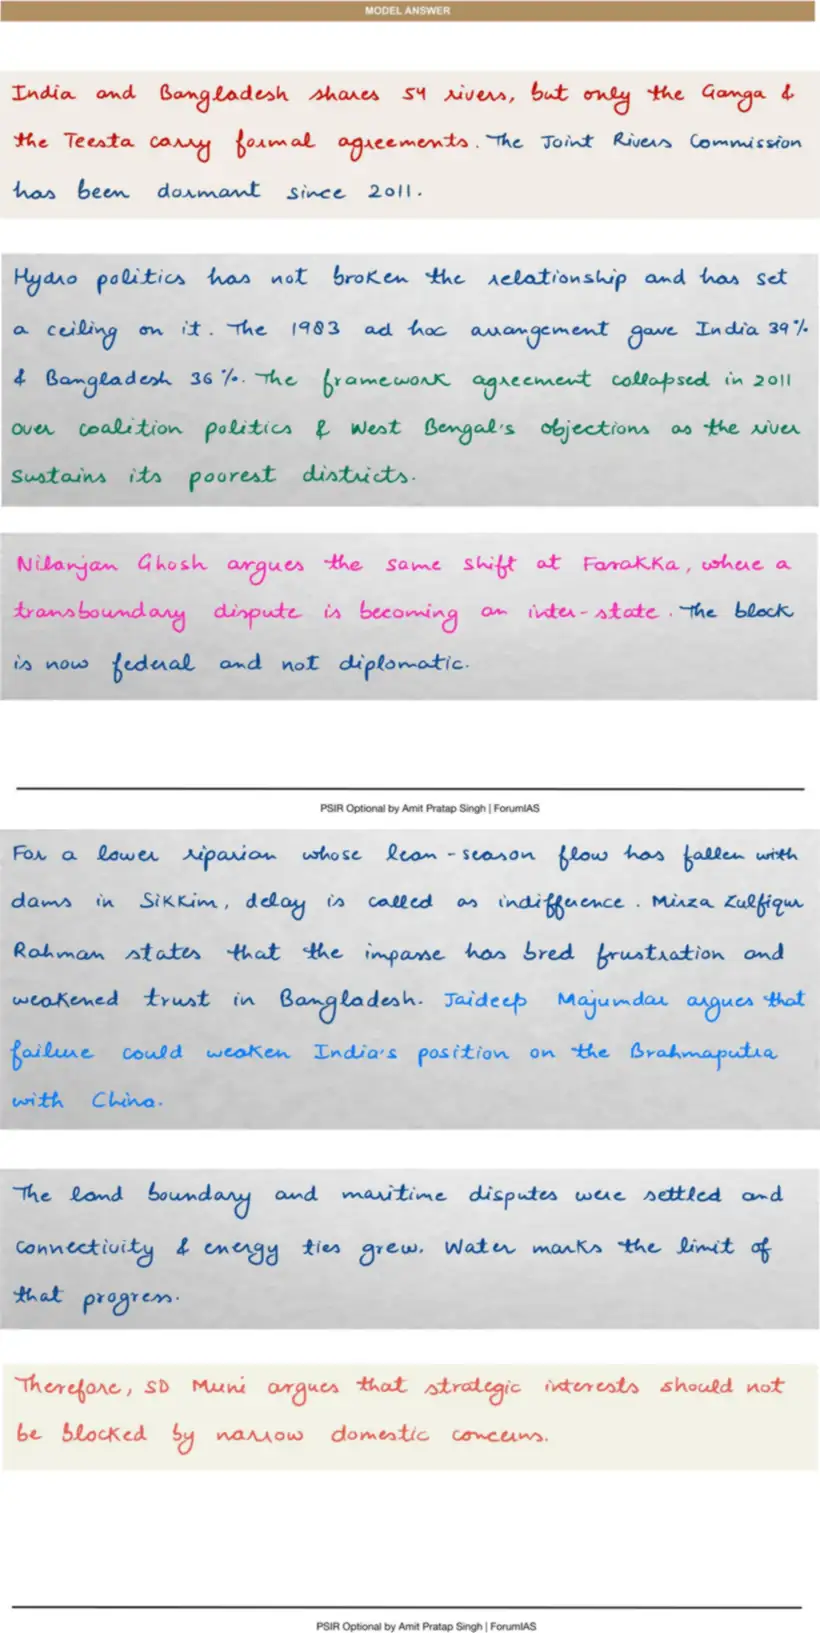 MODEL ANSWER
India and Bangladesh shares 54 rivers, but only the Ganga &
the Teesta carry formal agreements. The Joint Rivers Commission
has been dormant since 2011.
Hydro politics has not broken the relationship and has set
a ceiling on it. The 1983 ad hoc arrangement gave India 39%
& Bangladesh 36%. The framework agreement collapsed in 2011
over coalition politics & West Bengal's objections as the river
sustains its poorest districts.
Nilanjan Ghosh argues the same shift at Farakka, where a
transboundary dispute is becoming an inter-state. The block
is now federal and not diplomatic.
PSIR Optional by Amit Pratap Singh | ForumIAS
For a lower riparian whose lean-season flow has fallen with
dams in Sikkim, delay is called as indifference. Mirza Zulfiqur
Rahman states that the impasse has bred frustration and
weakened trust in Bangladesh. Jaideep Majumdar argues that
failure could weaken India's position on the Brahmaputra
with China.
The land boundary and maritime disputes were settled and
connectivity & energy ties grew. Water marks the limit of
that progress.
Therefore, SD Muni argues that strategic interests should not
be blocked by narrow domestic concerns.
PSIR Optional by Amit Pratap Singh | ForumIAS